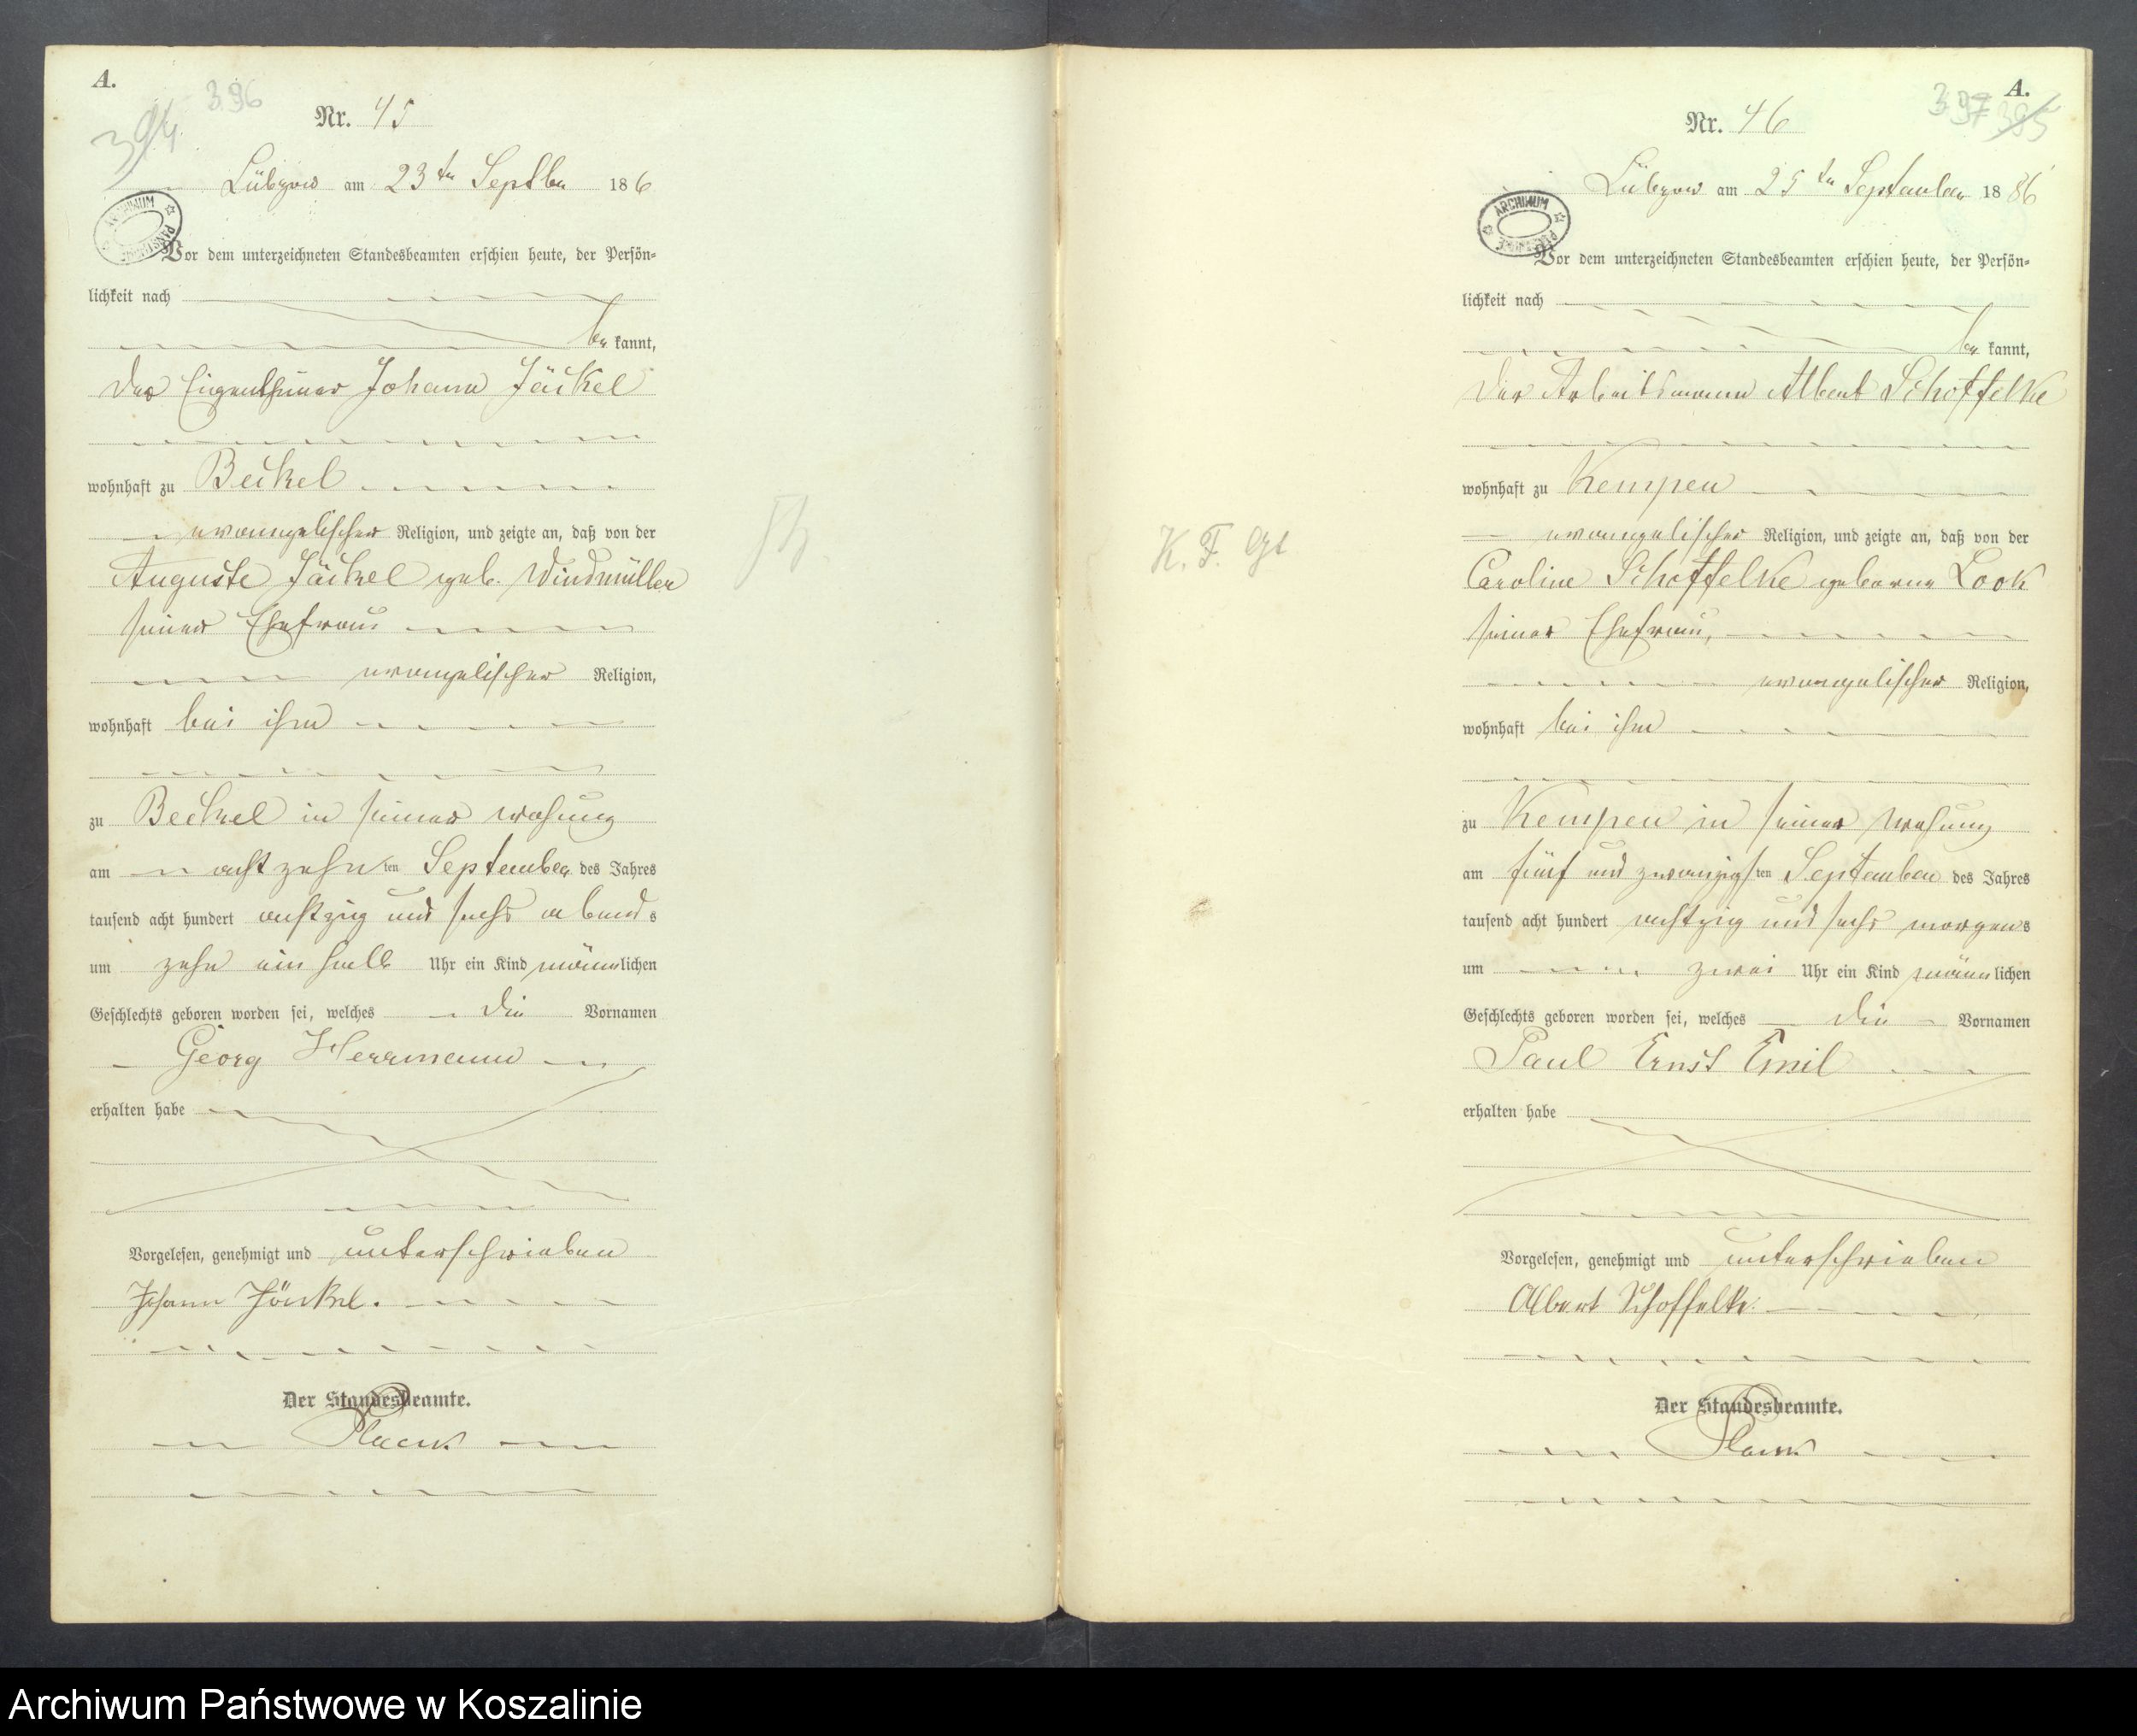 A.
394 396
Nr. 45
Lübzow am 23ten Septbr 186
ARCHIWUM
Vor dem unterzeichneten Standesbeamten erschien heute, der Persön-
lichkeit nach
be kannt,
der Eigenthümer Johann Jäckel
wohnhaft zu Beckel
evangelischer Religion, und zeigte an, daß von der
Auguste Jäckel geb. Windmüller
seiner Ehefrau
evangelischer Religion,
wohnhaft bei ihm
zu Beckel in seiner Wohnung
am achtzehnten September des Jahres
tausend acht hundert achtzig und sechs abends
um zehn ein halb Uhr ein Kind männlichen
Geschlechts geboren worden sei, welches die Vornamen
Georg Herrmann
erhalten habe
Vorgelesen, genehmigt und unterschrieben
Johann Jäckel.
Der Standesbeamte.
K. F. 
A.
397 395
Nr. 46
Lübzow am 25ten September 1886
ARCHIWUM
Vor dem unterzeichneten Standesbeamten erschien heute, der Persön-
lichkeit nach
be kannt,
der Arbeitsmann Albert Schoffelke
wohnhaft zu Kempen
evangelischer Religion, und zeigte an, daß von der
Caroline Schoffelke geborne Look
seiner Ehefrau,
evangelischer Religion,
wohnhaft bei ihm
zu Kempen in seiner Wohnung
am fünf und zwanzigsten September des Jahres
tausend acht hundert achtzig und sechs morgens
um zwei Uhr ein Kind männlichen
Geschlechts geboren worden sei, welches die Vornamen
Paul Ernst Emil
erhalten habe
Vorgelesen, genehmigt und unterschrieben
Albert Schoffelke.
Der Standesbeamte.
Archiwum Państwowe w Koszalinie